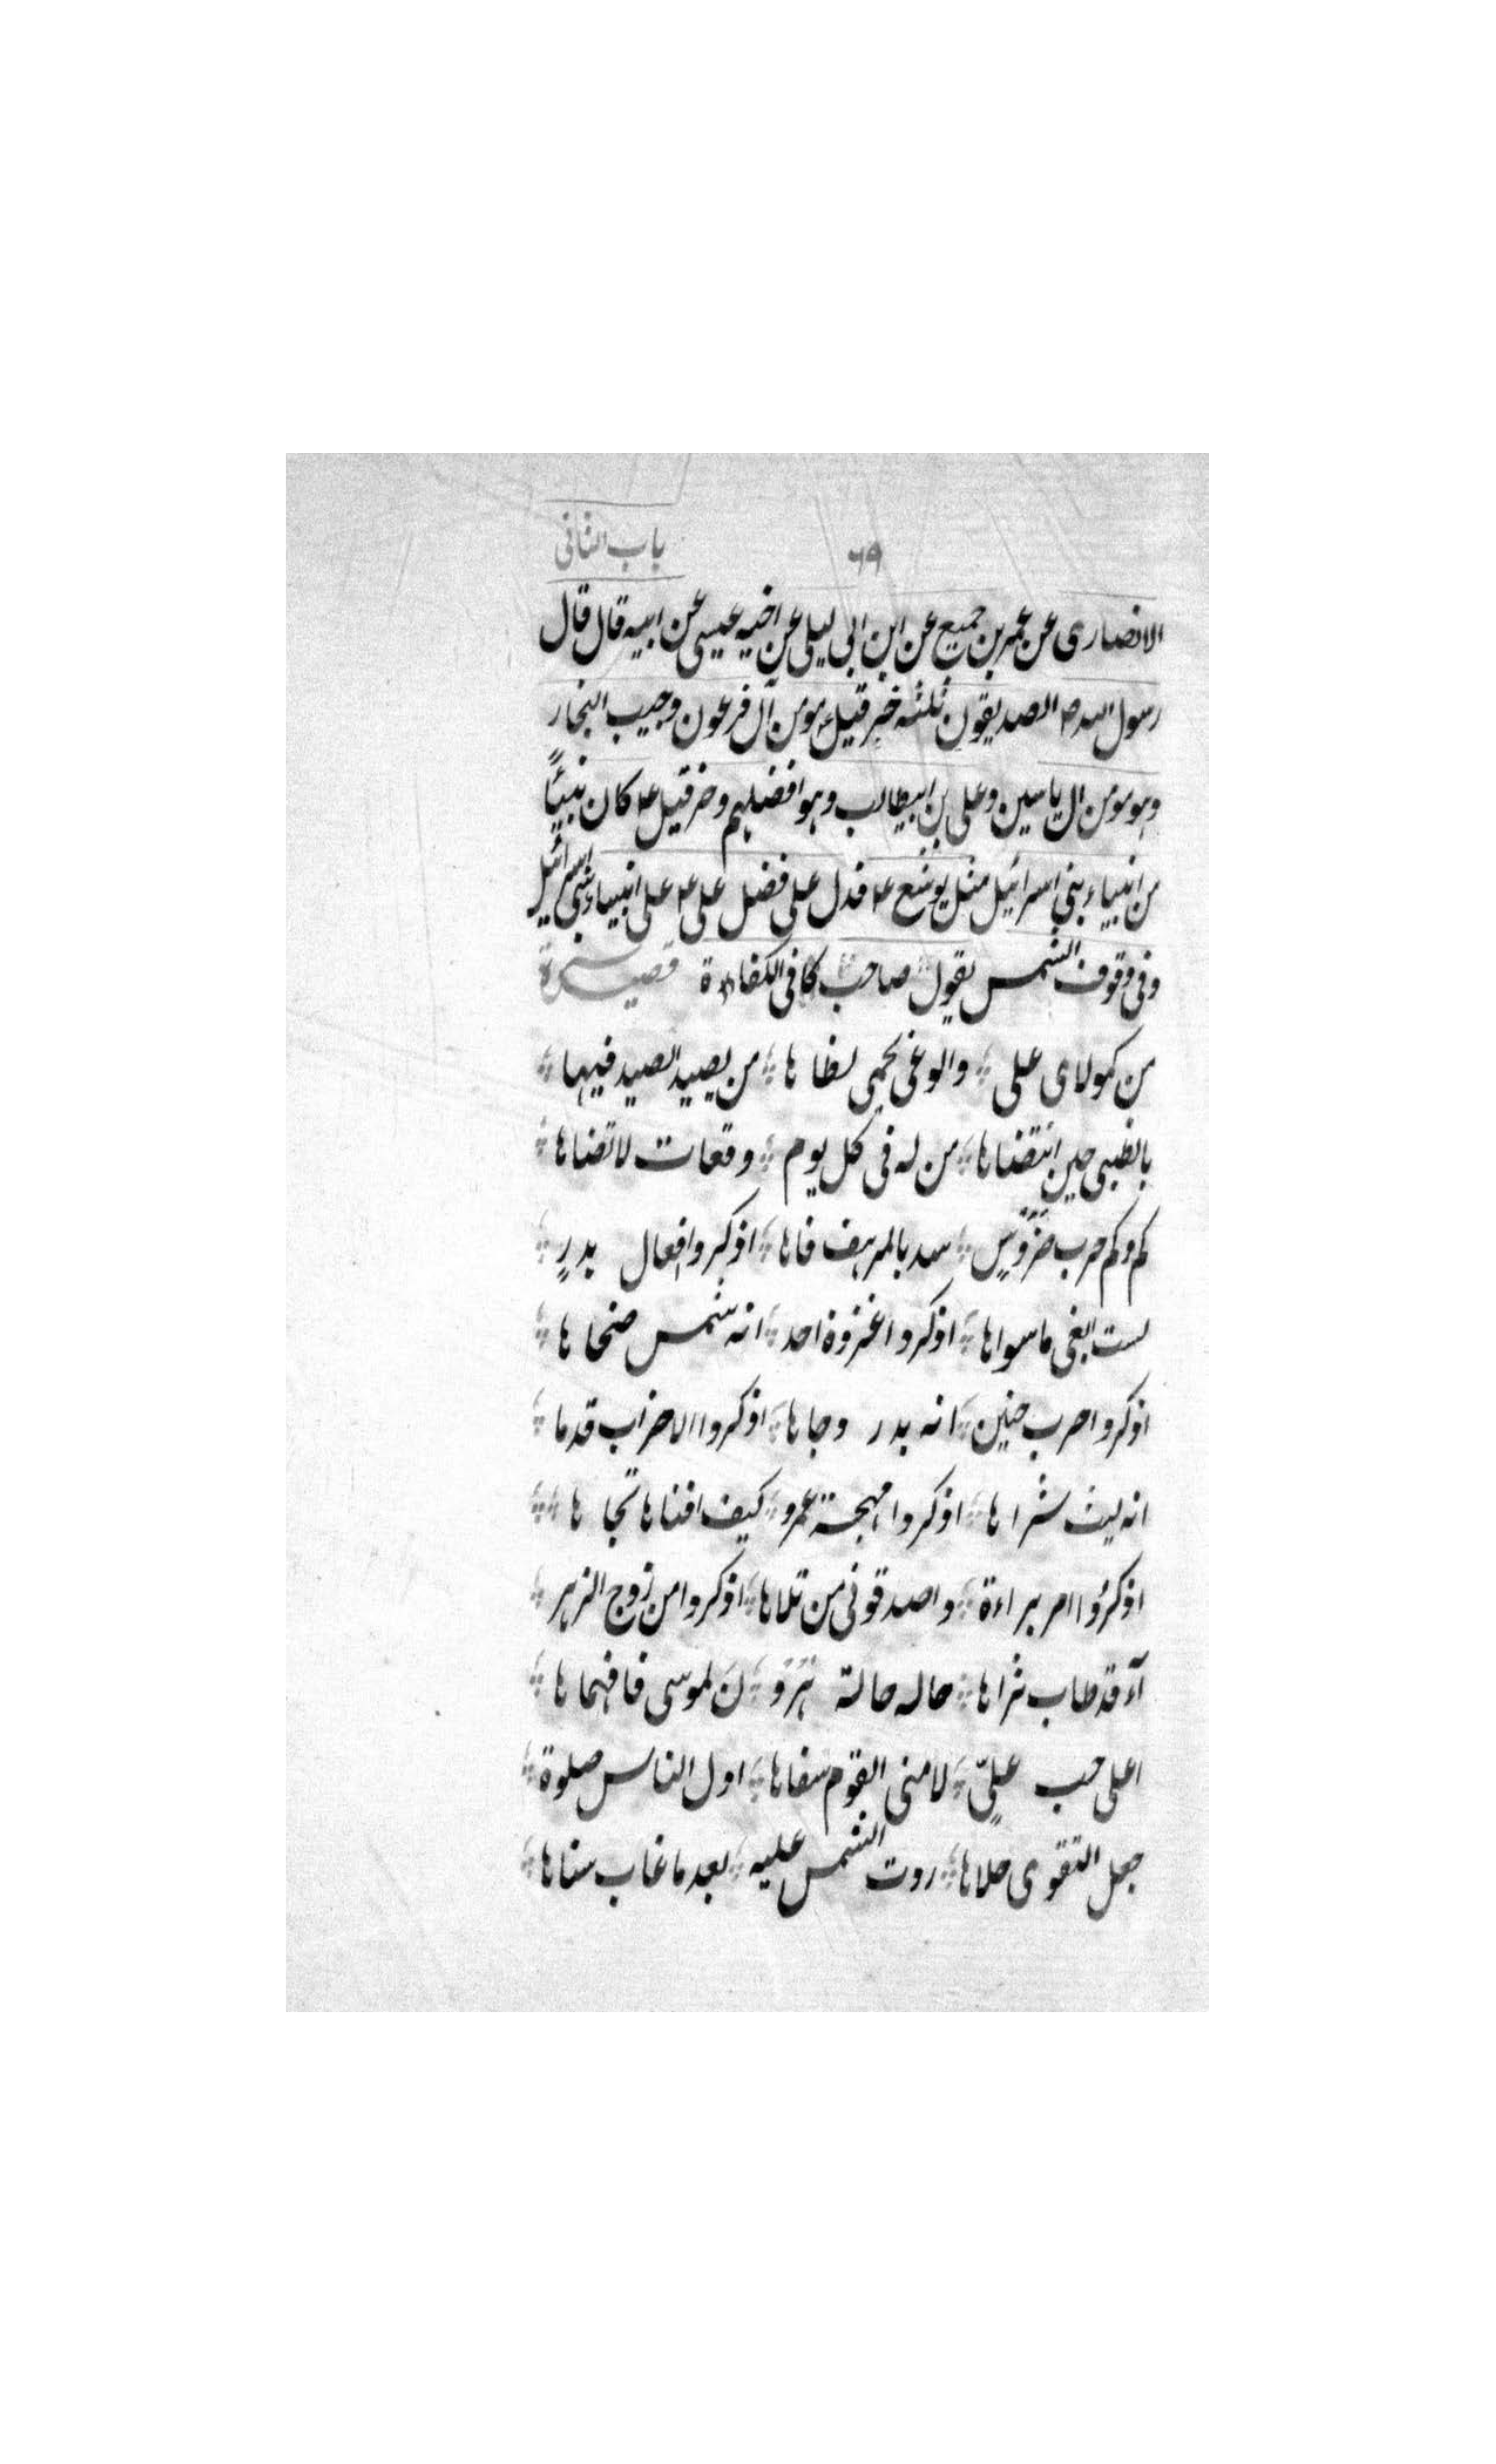 باب الثانی
٦٩
الانصاری عن عمر بن جمیع عن ابن ابی لیلی عن اخیه عیسی عن ابیه قال قال
رسول الله ص الصدیقون ثلثه خرقیل مومن آل فرعون وحبیب النجار
وهو مومن ال یاسین وعلی بن ابیطالب وهو افضلهم وخرقیل ع کان نبیًا
من انبیاء بنی اسرائیل مثل یوشع ع فدل علی فضل علی ع علی انبیاء بنی اسرائیل
وفی وقوف الشمس یقول صاحب کافی الکفاءة قصیدة
من کمولای علی ؞ والوغی تحمی لظاها ؞ من یصید الصید فیها ؞
بالظبی حین انتضاها ؞ من له فی کل یوم ؞ وقعات لاتضاها ؞
کم وکم حرب ضروسٍ ؞ سد بالمرهف فاها ؞ اذکروا افعال بدرٍ ؞
لست ابغی ماسواها ؞ اذکروا غزوة احد ؞ انه شمس ضحاها ؞
اذکروا حرب حنین ؞ انه بدر دجاها ؞ اذکروا الاحزاب قدما ؞
انه لیث شراها ؞ اذکروا مهجة عمرو ؞ کیف افناها تجاها ؞
اذکرُوا امر براءة ؞ واصدقونی من تلاها ؞ اذکروا من زوج الزهر ؞
آء قد طاب ثراها ؞ حاله حالة هرو ؞ نَ لموسی فافهماها ؞
اعلی حب علیّ ؞ لامنی القوم سفاها ؞ اول الناس صلوة ؞
جعل التقوی حلاها ؞ ردت الشمس علیه ؞ بعد ما غاب سناها ؞